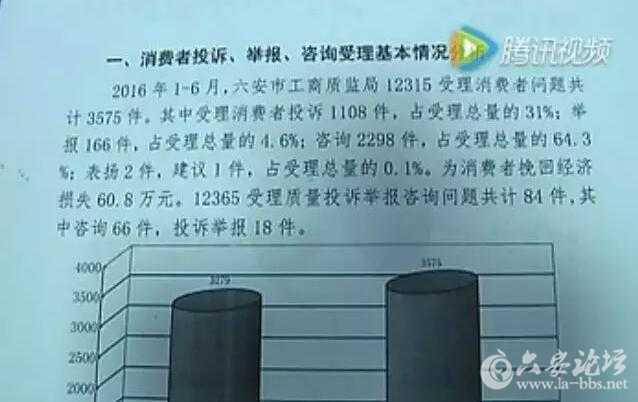 腾讯视频
一、消费者投诉、举报、咨询受理基本情况分析
2016年1-6月,六安市工商质监局12315受理消费者问题共
计3575件。其中受理消费者投诉1108件,占受理总量的31%;举
报166件,占受理总量的4.6%;咨询2298件,占受理总量的64.3
%;表扬2件,建议1件,占受理总量的0.1%。为消费者挽回经济
损失60.8万元。12365受理质量投诉举报咨询问题共计84件,其
中咨询66件,投诉举报18件。
4000
3500
3000
2500
2000
3279
3575
六安论坛
www.la-bbs.net